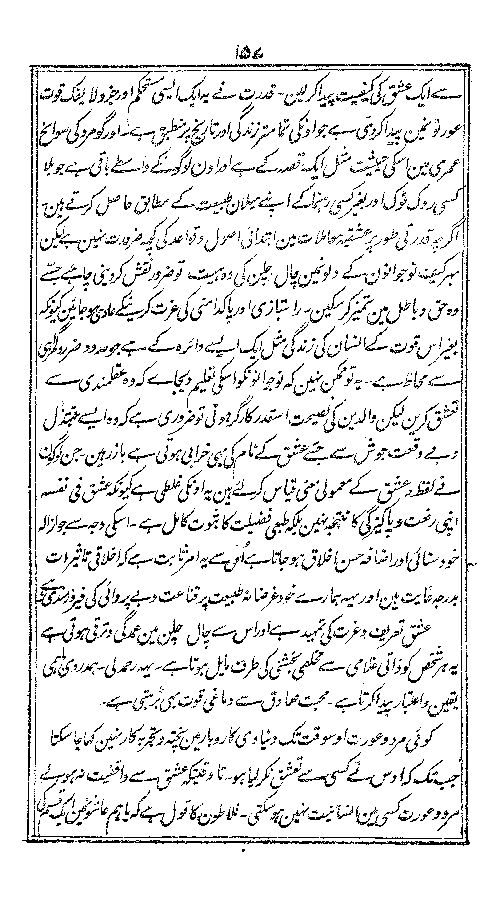 ۱۵۷
سے ایک عشق کی کیفیت پیدا کر لین۔ قدرت نے یہ ایک ایسی مستحکم اور جزو لا ینفک قوت
عورتونمین پیدا کر دی ہے جو اونکی تمامتر زندگی اور تاریخ پر منطبق ہے۔ اور گو مرد کی سوانح
عمری مین اسکی حیثیت مثل ایک قصہ کے ہے اور اون لوگونکے واسطے باقی ہے جو بلا
کسی روک ٹوک اور بغیر کسی رہنما کے اپنے میلان طبیعت کے مطابق حاصل کرتے ہین۔
اگرچہ قدرتی طور پر عشقیہ معاملات مین ابتدائی اصول و قواعد کی کچھ ضرورت نہین ہے لیکن
بہر کیف نوجوانون کے دلونمین چال چلن کی وہ ہیبت تو ضرور نقش کر دینی چاہئے جس سے
وہ حق و باطل مین تمیز کر سکین۔ راستبازی اور پاکدامنی کی عزت کرنیکے عادی ہو جائین کیونکہ
بغیر اس قوت کے انسان کی زندگی مثل ایک ایسے دائرہ کے ہے جو حدود ضرر و گمراہی
سے محاط ہے۔ یہ تو ممکن نہین کہ نوجوانونکو اسکی تعلیم دیجاے کہ وہ عقلمندی سے
تعشق کرین لیکن والدین کی نصیحت اسقدر کارگر ہونی تو ضروری ہے کہ وہ ایسے مبتذل
و بے وقعت جوش سے جس سے عشق کے نام کی بھی خرابی ہوتی ہے باز رہین۔ جن لوگون
نے لفظ عشق کے معمولی معنی قیاس کر لئے ہین یہ اونکی غلطی ہے کیونکہ عشق فی نفسہ
اپنی رفعت و پاکیزگی کا نتیجہ نہین بلکہ طبعی فضیلت کا ثبوت کامل ہے۔ اسکی وجہ سے جو ازالہ
خودستائی اور اضافہ حسن اخلاق ہو جاتا ہے اُس سے یہ امر ثابت ہے کہ اخلاقی تاثیرات
بدرجہ غایت ہین اور یہہ ہمارے خود غرضانہ طبیعت پر قناعت و بے پروائی کی فیروزمندی ہے
عشق تعریف و عزت کی تمہید ہے اور اس سے چال چلن مین عمدگی و ترقی ہوتی ہے
یہ ہر شخص کو ذاتی غلامی سے مخلصی بخشنے کی طرف مایل ہوتا ہے۔ یہہ رحمدلی۔ ہمدردی باہمی
یقین و اعتبار پیدا کرتا ہے۔ محبت صادق سے دماغی قوت بھی بڑہتی ہے۔
کوئی مرد و عورت اوسوقت تک دنیاوی کاروبار مین پختہ و تجربہ کار نہین کہا جا سکتا
جب تک کہ اوس نے کسی سے تعشق نکر لیا ہو۔ تا وقتیکہ عشق سے واقفیت نہ ہولے
مرد و عورت کسی مین انسانیت نہین ہو سکتی۔ فلاطون کا قول ہے کہ باہم عاشقونمین ایک قسم کی